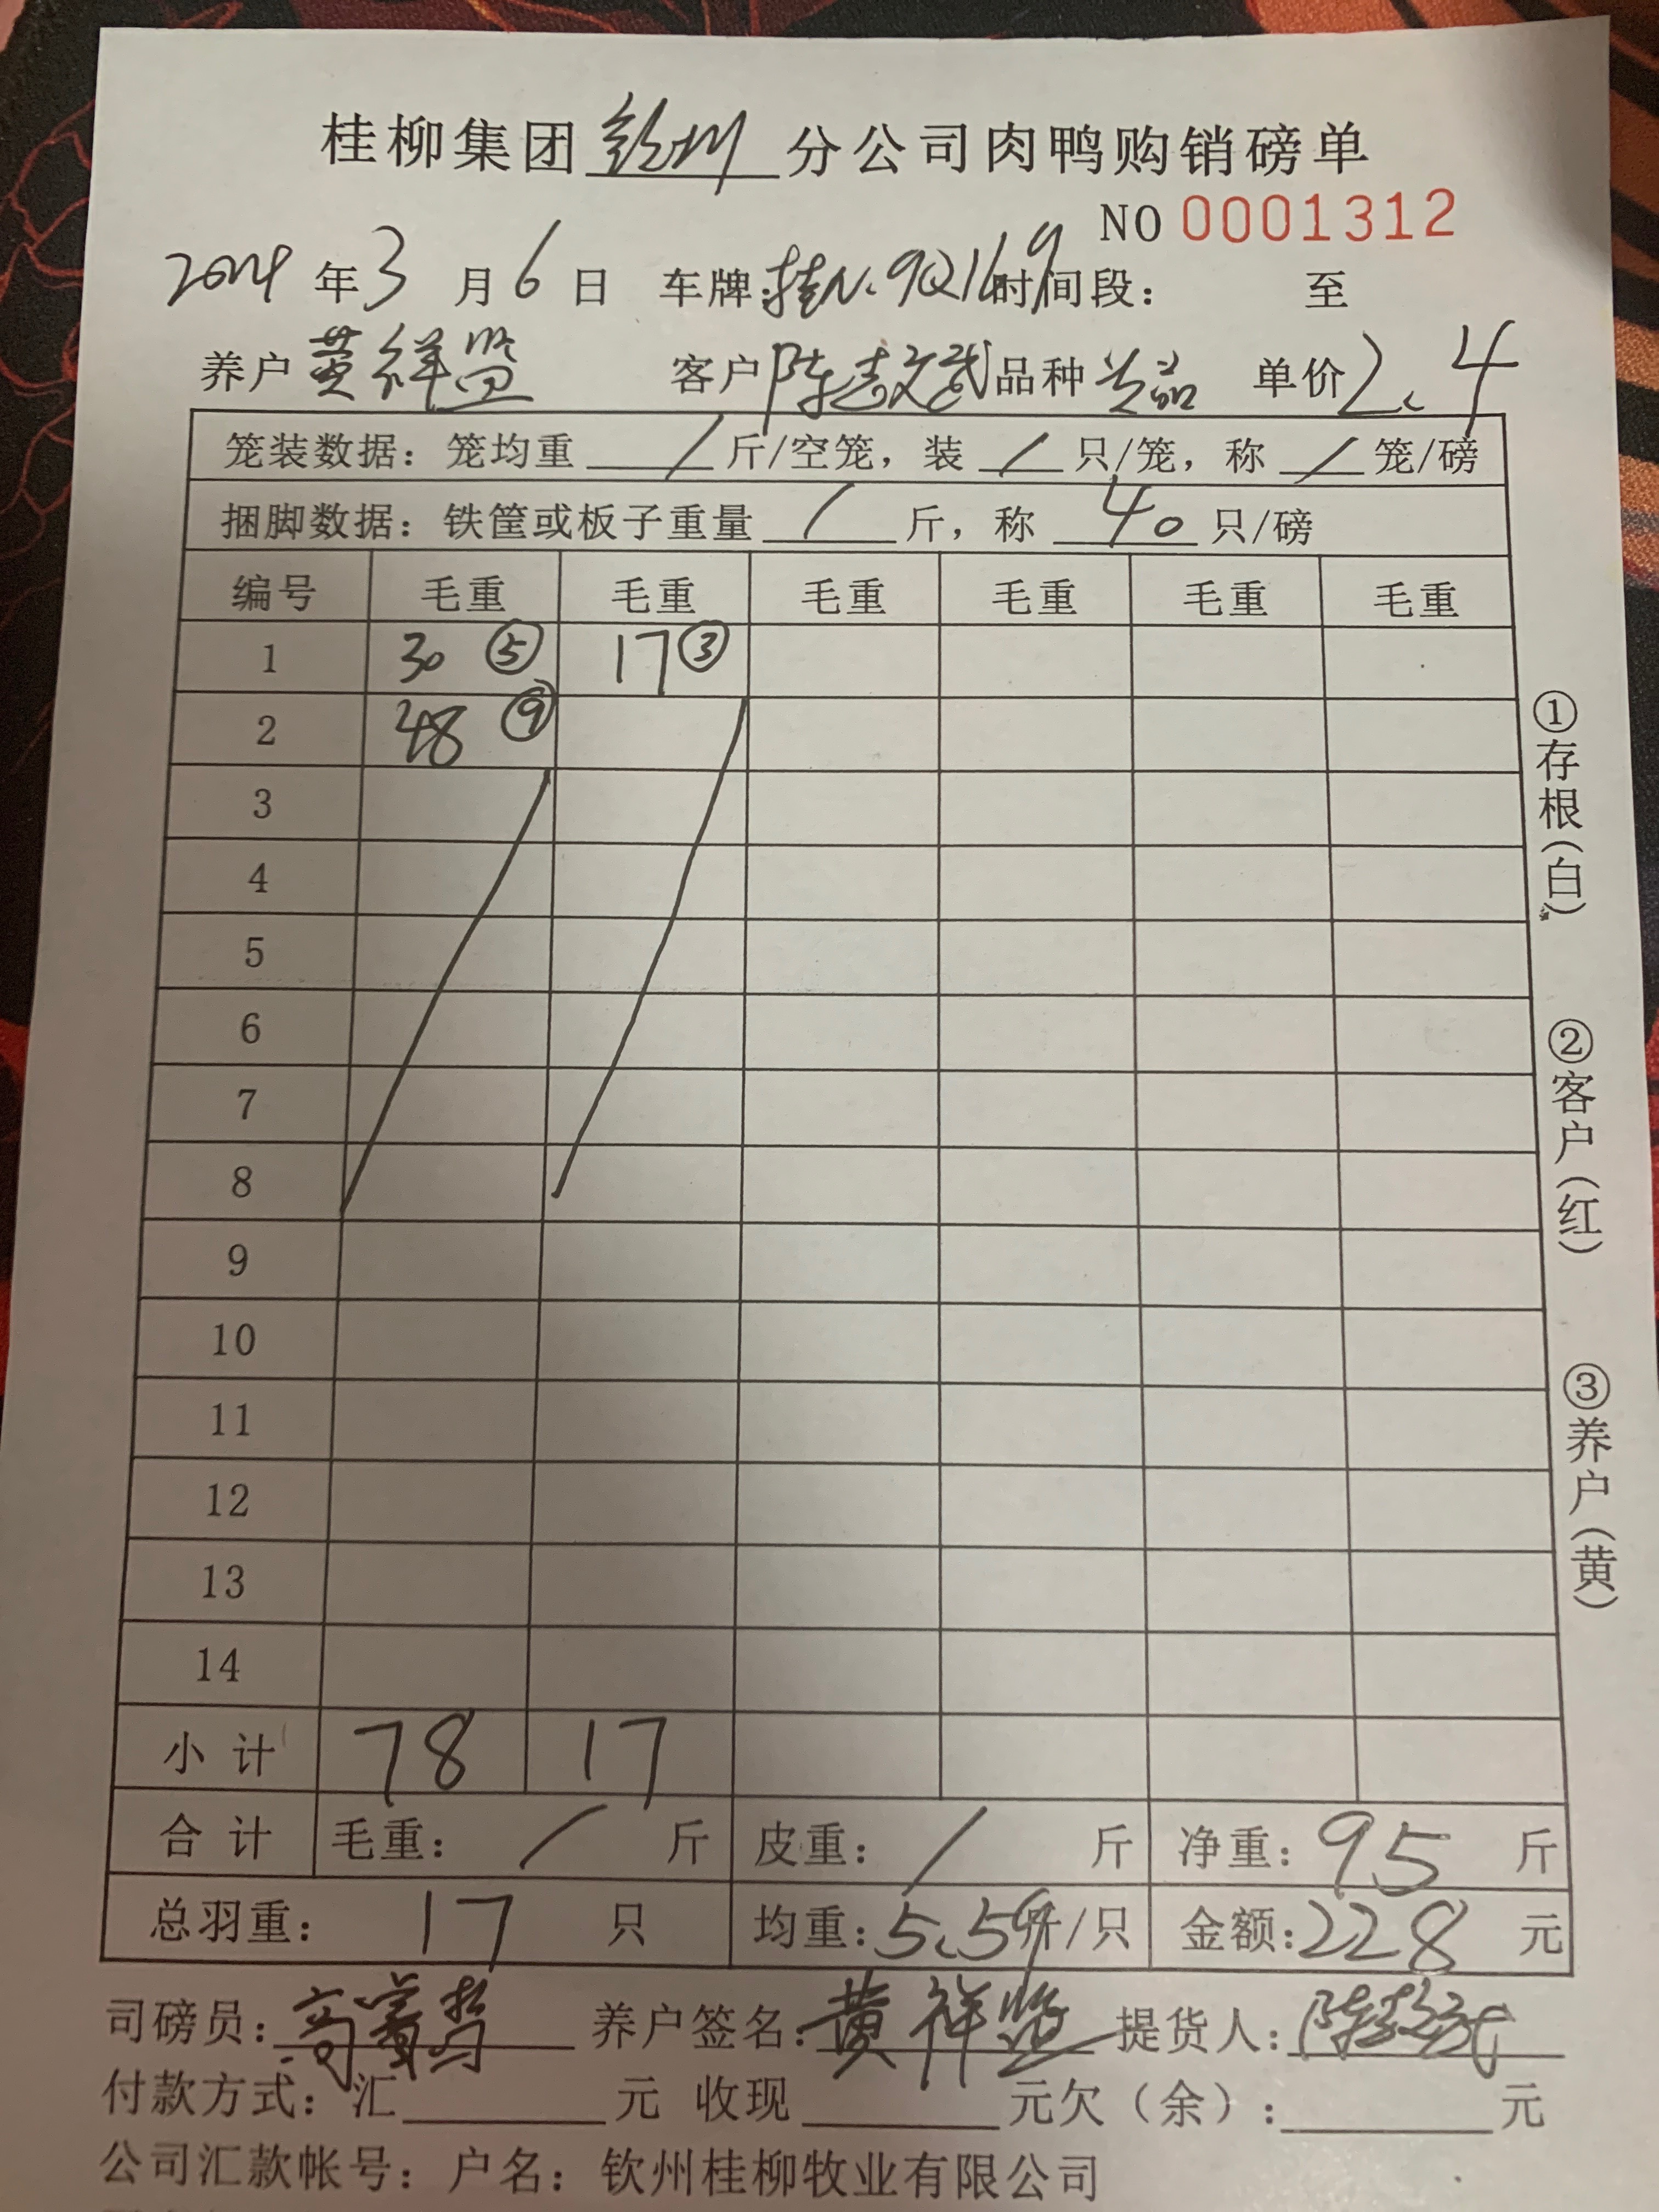 桂柳集团钦州分公司肉鸭购销磅单
NO 0001312
2024年3月6日 车牌:桂N.9Q169时间段: 至
养户黄祥坚 客户陈志武品种 单价2.4
笼装数据:笼均重/斤/空笼,装/只/笼,称/笼/磅
捆脚数据:铁筐或板子重量/斤,称40只/磅
编号 毛重 毛重 毛重 毛重 毛重 毛重
1 30 ⑤ 17 ③
2 48 ⑨
3
4
5
6
7
8
9
10
11
12
13
14
小计 78 17
合计 毛重:/斤 皮重:/斤 净重:95斤
总羽重:17只 均重:5.59斤/只 金额:228元
司磅员: 养户签名:黄祥坚 提货人:陈志武
付款方式:汇 元 收现 元欠(余): 元
公司汇款帐号:户名:钦州桂柳牧业有限公司
①存根(白) ②客户(红) ③养户(黄)